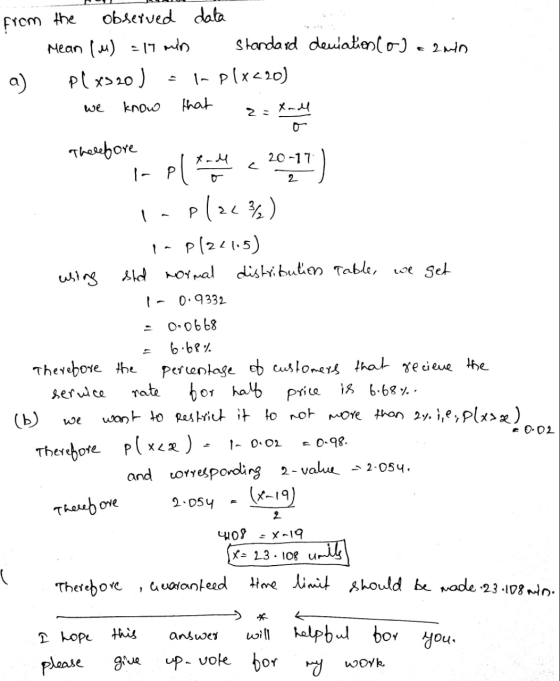 From the observed data
Mean (μ) = 17 min Standard deviation (σ) = 2 min
a) P(x>20) = 1- P(x<20)
we know that z = x-μ/σ
Therefore
1- P(x-μ/σ < 20-17/2)
1 - P(z< 3/2)
1- P(z<1.5)
using std normal distribution Table, we get
1- 0.9332
= 0.0668
= 6.68%
Therefore the percentage of customers that recieve the
service rate for half price is 6.68%.
(b) we want to Restrict it to not more than 2%. i,e, P(x>x) = 0.02
Therefore P(x<x) = 1- 0.02 = 0.98.
and corresponding z-value = 2.054.
Therefore 2.054 = (x-19)/2
4108 = x-19
x= 23.108 units
Therefore, Guaranteed time limit should be made 23.108 min.
I hope this answer will helpful for you.
please give up-vote for my work